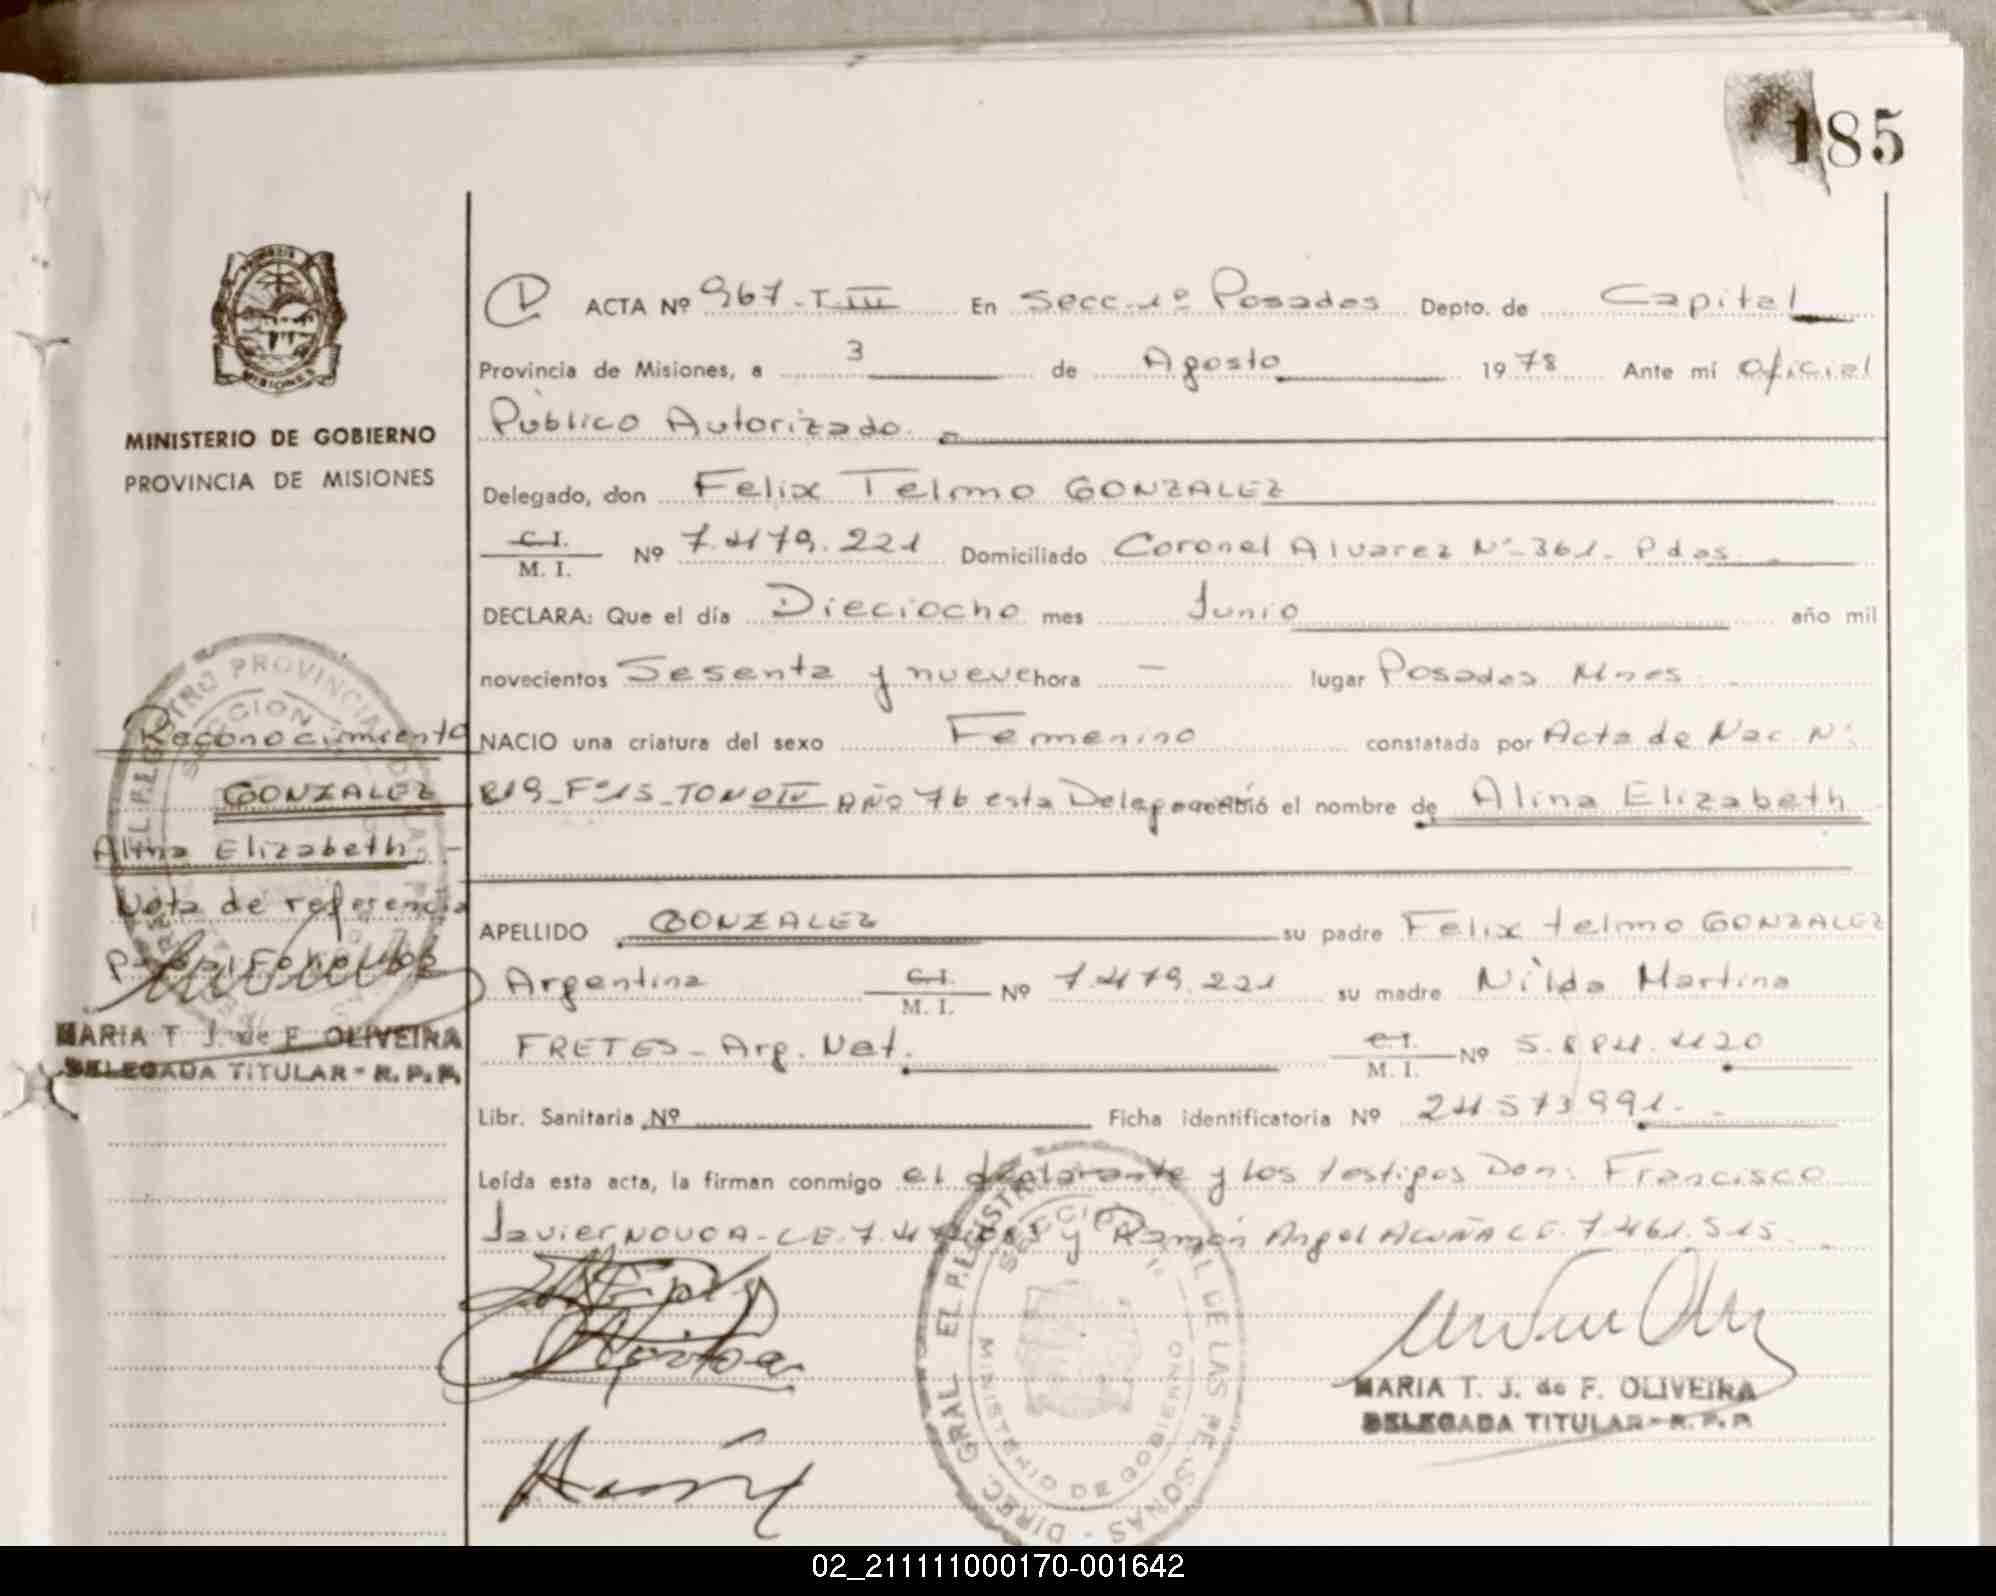 185
ACTA Nº 967-T.III En Secc. 1º Posadas Depto. de Capital
Provincia de Misiones, a 3 de Agosto 1978 Ante mí oficial
Público Autorizado.
MINISTERIO DE GOBIERNO
PROVINCIA DE MISIONES
Delegado, don Felix Telmo GONZALEZ
C.I.
M. I. Nº 7.479.221 Domiciliado Coronel Alvarez Nº 361- Pdas.
DECLARA: Que el día Dieciocho mes Junio año mil
novecientos Sesenta y nueve hora — lugar Posadas Mnes.
NACIO una criatura del sexo Femenino constatada por Acta de Nac. Nº
819-Fº15-TOMO IV AÑO 76 esta recibió el nombre de Alina Elizabeth
APELLIDO GONZALEZ su padre Felix telmo GONZALEZ
Argentina C.I.
M. I. Nº 7.479.221 su madre Nilda Martina
FRETES - Arg. Nat. C.I.
M. I. Nº 5.884.420
Libr. Sanitaria Nº Ficha identificatoria Nº 24.573.991.
Leída esta acta, la firman conmigo el declarante y los testigos Don: Francisco
Javier NOVOA- L.E. y Ramón Angel ACUÑA L.E. 7.461.515.
Reconocimiento
GONZALEZ
Alina Elizabeth
Nota de referencia
MARIA T. J. de F. OLIVEIRA
DELEGADA TITULAR - R. P. P.
DIREC. GRAL EL P. REGISTRO PROVINCIAL DE LAS PERSONAS
SECCION 1º
MINISTERIO DE GOBIERNO
MARIA T. J. de F. OLIVEIRA
DELEGADA TITULAR - R. P. P.
02_211111000170-001642